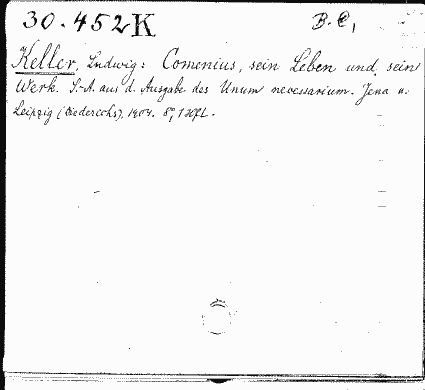 30.452K B.C,
Keller, Ludwig: Comenius, sein Leben und sein
Werk. S.-A. aus d. Ausgabe des Unum necessarium. Jena u.
Leipzig (Diederichs), 1904. 8°,